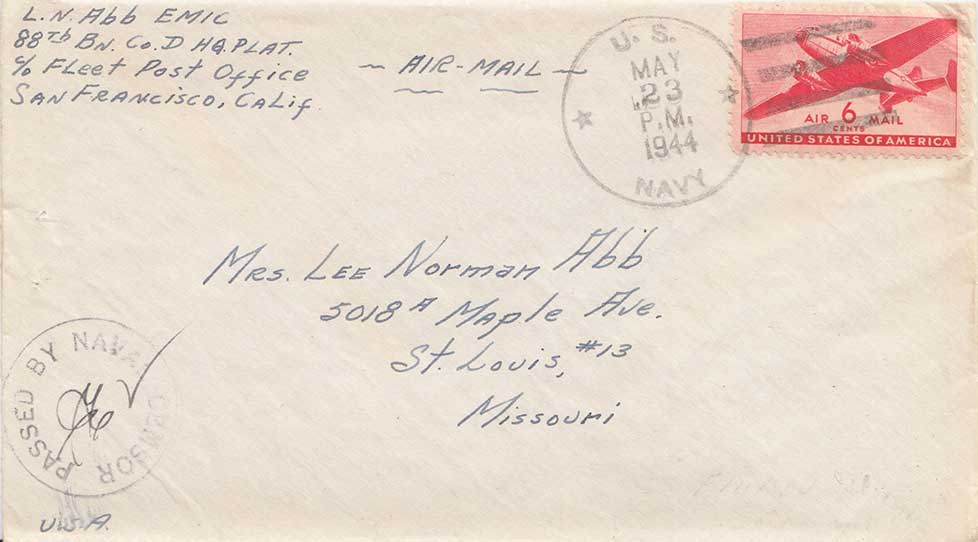 L.N. Abb EMIC
88th Bn. Co. D HQ. PLAT.
c/o Fleet Post Office
San Francisco, Calif.
~ AIR-MAIL ~
U. S.
MAY
23
P.M.
1944
NAVY
AIR 6 MAIL
CENTS
UNITED STATES OF AMERICA
Mrs. Lee Norman Abb
5018 A Maple Ave.
St. Louis, #13
Missouri
PASSED BY NAVAL CENSOR
U.S.A.